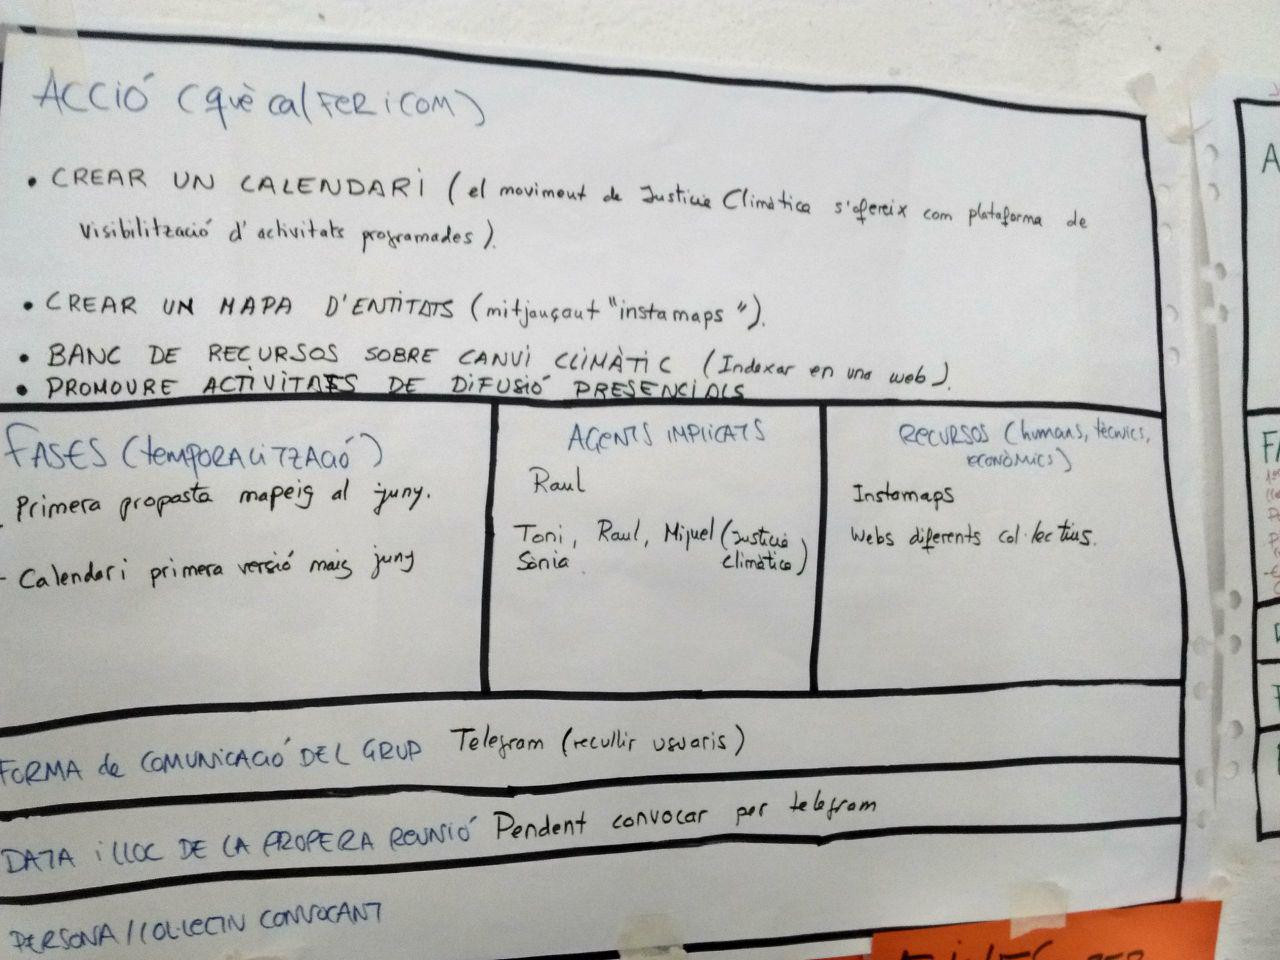 ACCIÓ (què cal FER i COM)
• CREAR UN CALENDARI (el moviment de Justícia Climàtica s'ofereix com plataforma de
visibilització d'activitats programades).
• CREAR UN MAPA D'ENTITATS (mitjançant "instamaps").
• BANC DE RECURSOS SOBRE CANVI CLIMÀTIC (Indexar en una web).
• PROMOURE ACTIVITATS DE DIFUSIÓ PRESENCIALS
FASES (TEMPORALITZACIÓ)
- Primera proposta mapeig al juny.
- Calendari primera versió maig juny
AGENTS IMPLICATS
Raul
Toni, Raul, Miquel (Justícia
Sònia Climàtica)
RECURSOS (humans, tècnics,
econòmics)
Instamaps
Webs diferents col·lectius.
FORMA de COMUNICACIÓ DEL GRUP Telegram (recullir usuaris)
DATA i LLOC DE LA PROPERA REUNIÓ Pendent convocar per telegram
PERSONA / COL·LECTIU CONVOCANT